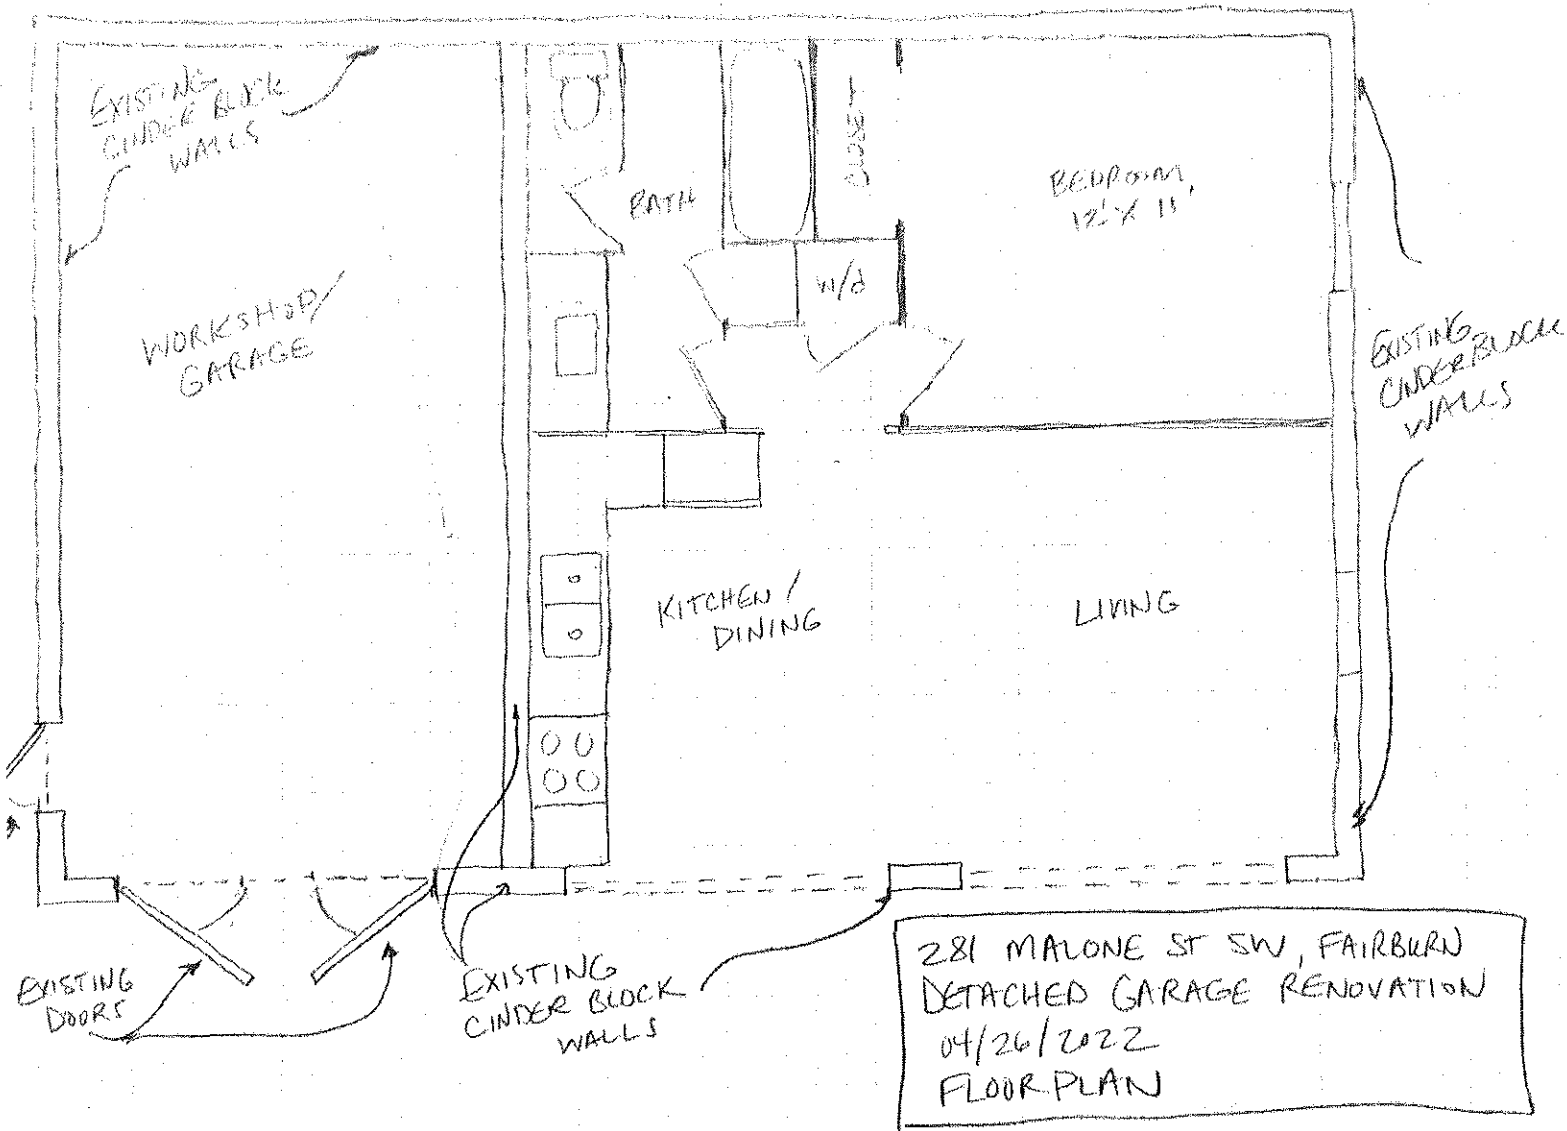 EXISTING
CINDER BLOCK
WALLS
CLOSET
BATH
BEDROOM
12' X 11'
W/d
WORKSHOP/
GARAGE
EXISTING
CINDERBLOCK
WALLS
KITCHEN /
DINING
LIVING
EXISTING
DOORS
EXISTING
CINDER BLOCK
WALLS
281 MALONE ST SW, FAIRBURN
DETACHED GARAGE RENOVATION
04/26/2022
FLOOR PLAN